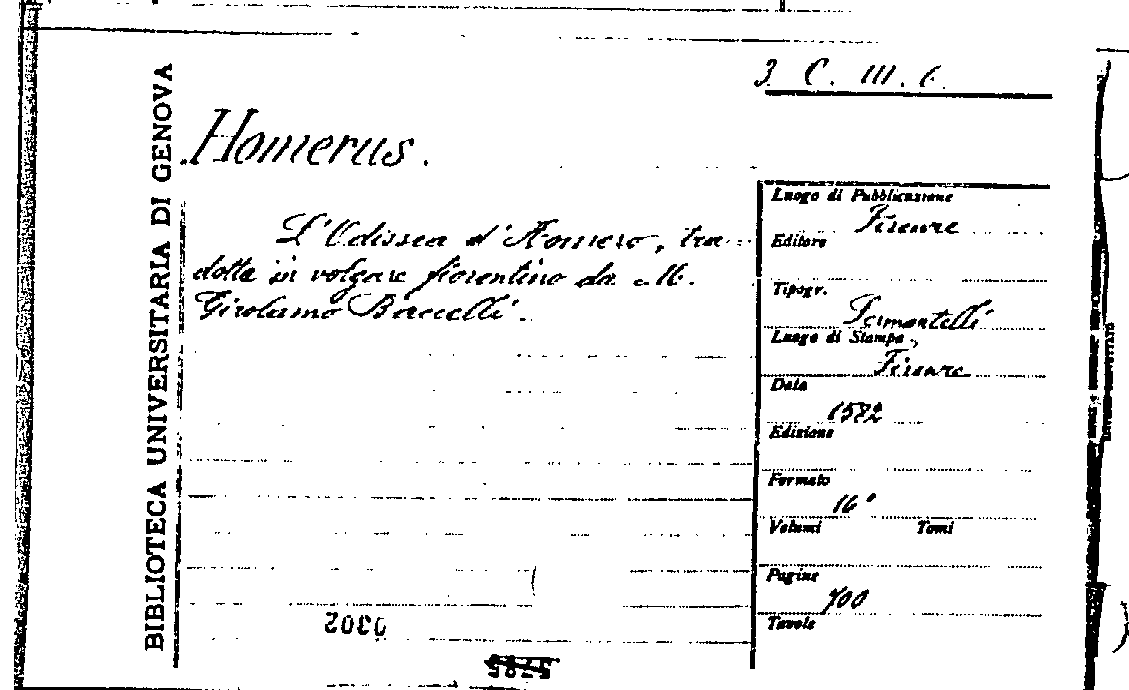 3. C. III. 6.
BIBLIOTECA UNIVERSITARIA DI GENOVA
Homerus.
L'Odissea d'Homero, tra-
dotta in volgare fiorentino da M.
Girolamo Baccelli.
Luogo di Pubblicazione
Firenze
Editore
Tipogr.
Sermartelli
Luogo di Stampa
Firenze
Data
1582
Edizione
Formato
16°
Volumi Tomi
Pagine
700
Tavole
0302